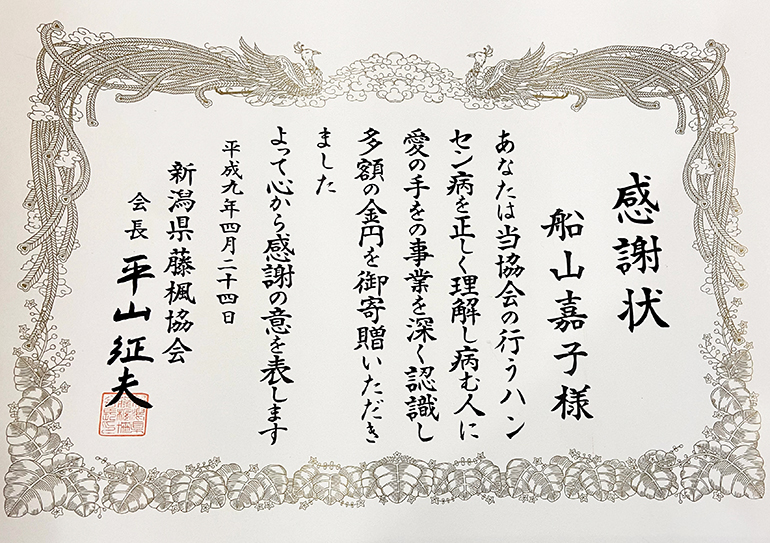 感謝状
船山嘉子様
あなたは当協会の行うハン
セン病を正しく理解し病む人に
愛の手をの事業を深く認識し
多額の金円を御寄贈いただき
ました
よって心から感謝の意を表します
平成九年四月二十四日
新潟県藤楓協会
会長 平山征夫